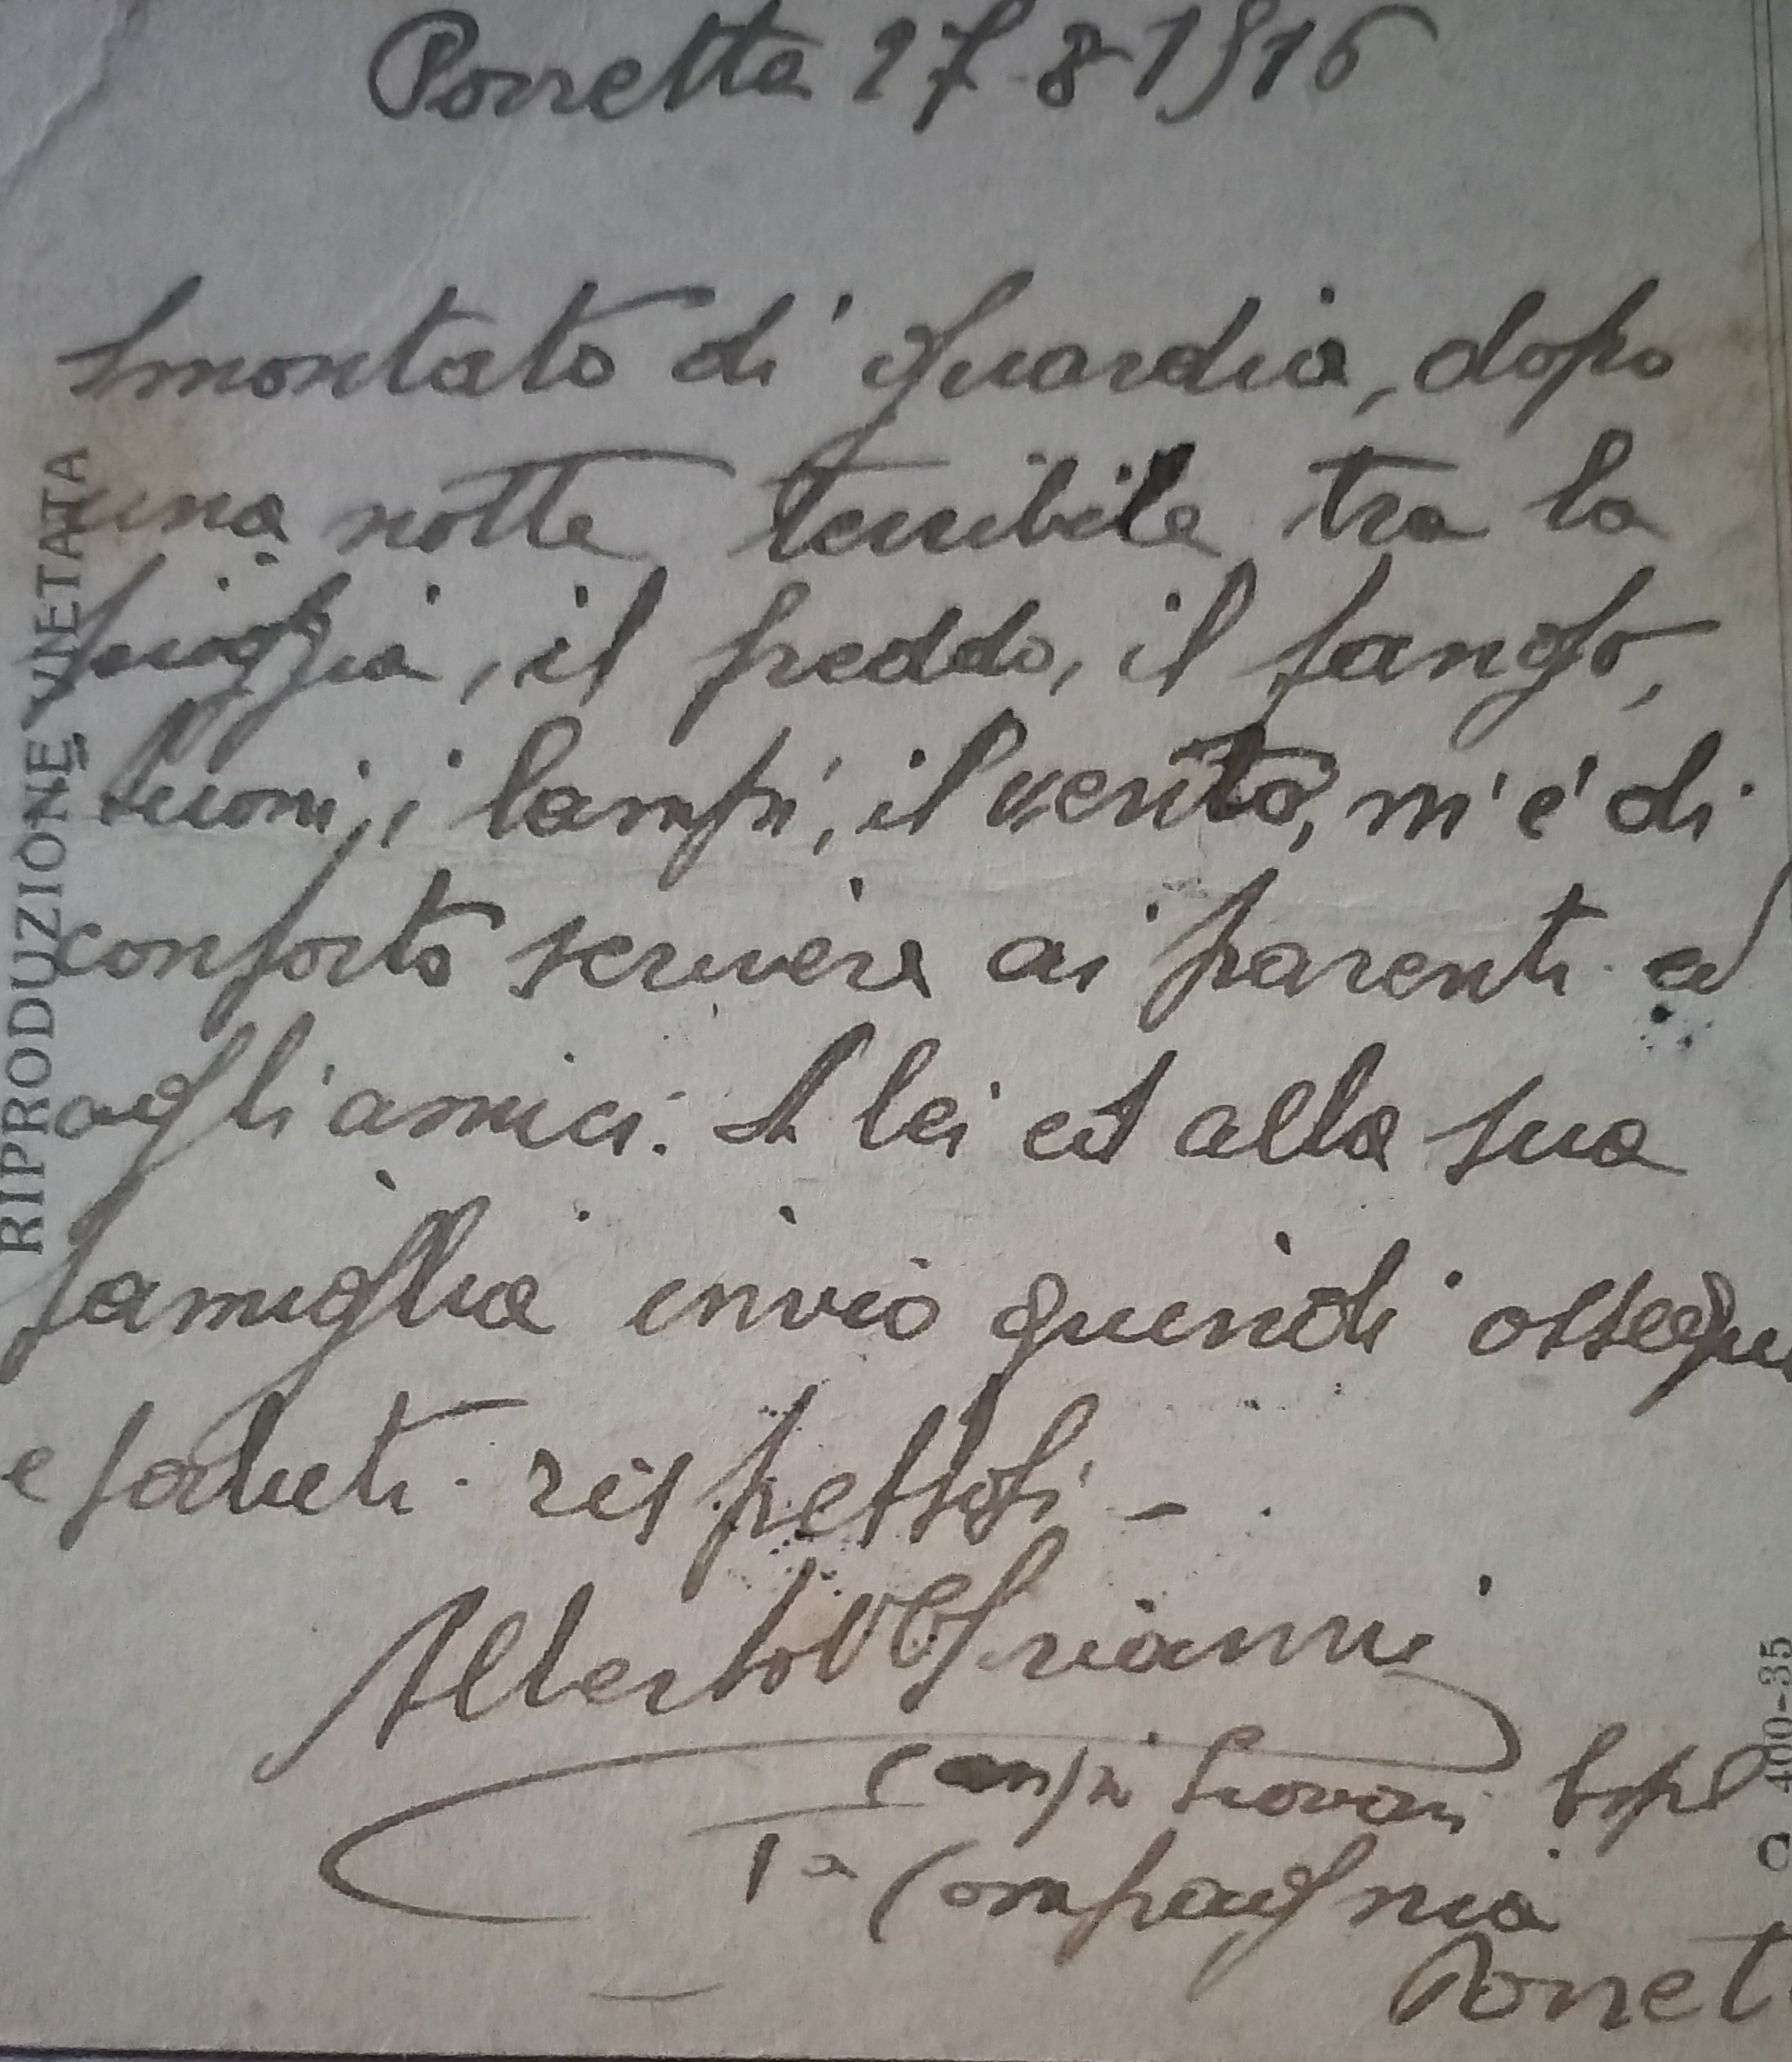 Porretta 27-8-1916
Smontato di guardia, dopo
una notte terribile tra la
pioggia, il freddo, il fango,
tuoni, i lampi, il vento, m'è di
conforto scrivere ai parenti ed
agli amici. A lei ed alla sua
famiglia invio quindi ossequi
e saluti rispettosi -
Alberto
Campi Giovani
1a Compagnia
Porret
RIPRODUZIONE VIETATA
400-35